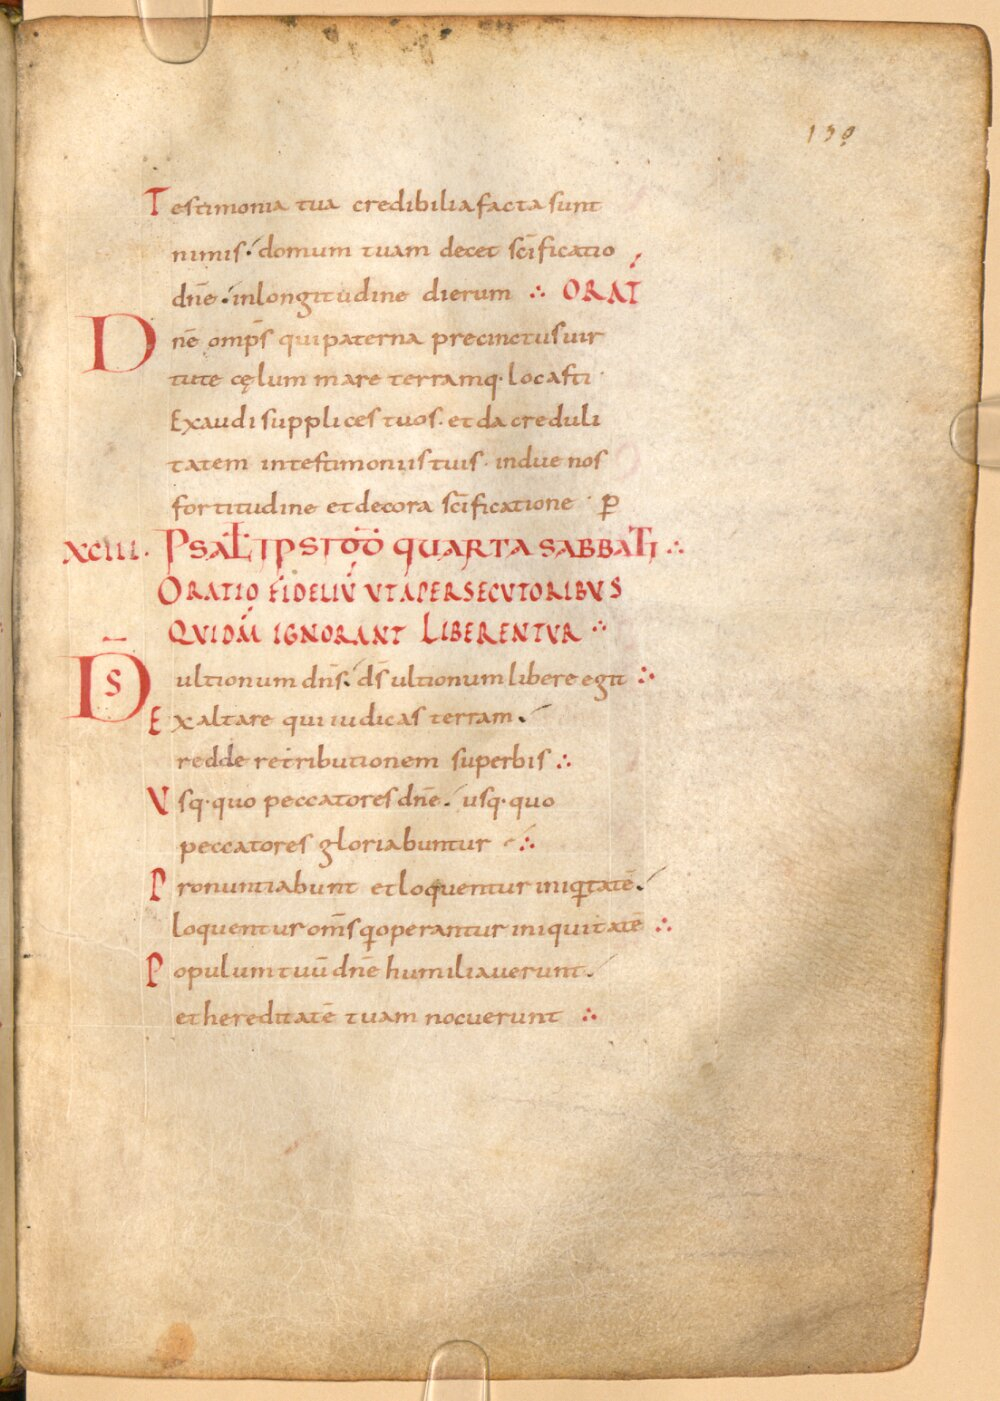 139
Testimonia tua credibilia facta sunt
nimis ./ domum tuam decet sc̄ificatio
dn̄e ./ inlongitudine dierum ∴ ORAT̄
Dn̄e omp̄s qui paterna precinctus uir
tute cęlum mare terramq· locasti ·
Exaudi supplices tuos · et da creduli
tatem in testimoniis tuis · indue nos
fortitudine et decora sc̄ificatione · ꝑ
XCIII· PSAL̄ IPSI D̄D̄ QUARTA SABBATI ∴
ORATIO FIDELIŪ UT A PERSECUTORIBUS
QUI DM̄ IGNORANT LIBERENTUR ∴
D̄S ultionum dn̄s ./ ds̄ ultionum libere egit ∴
Exaltare qui iudicas terram ./
redde retributionem superbis ∴
Vsq· quo peccatores dn̄e ./ usq· quo
peccatores gloriabuntur ∴
Pronuntiabunt et loquentur iniqitatē ./
loquentur om̄s q operantur iniquitatē ∴
Populum tuū dn̄e humiliauerunt ./
et hereditatē tuam nocuerunt ∴